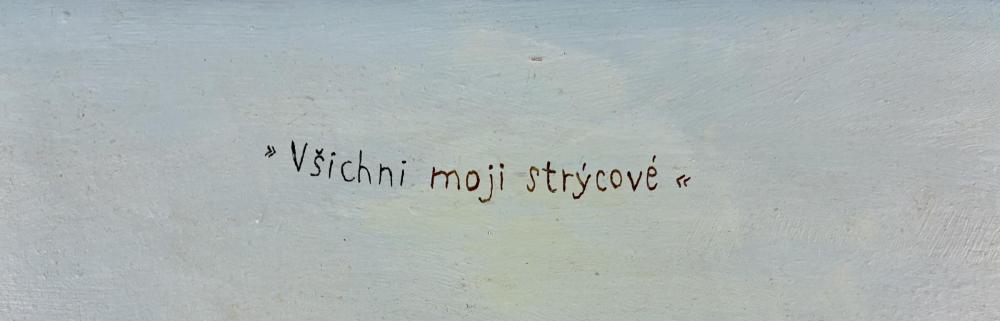 » Všichni moji strýcové «